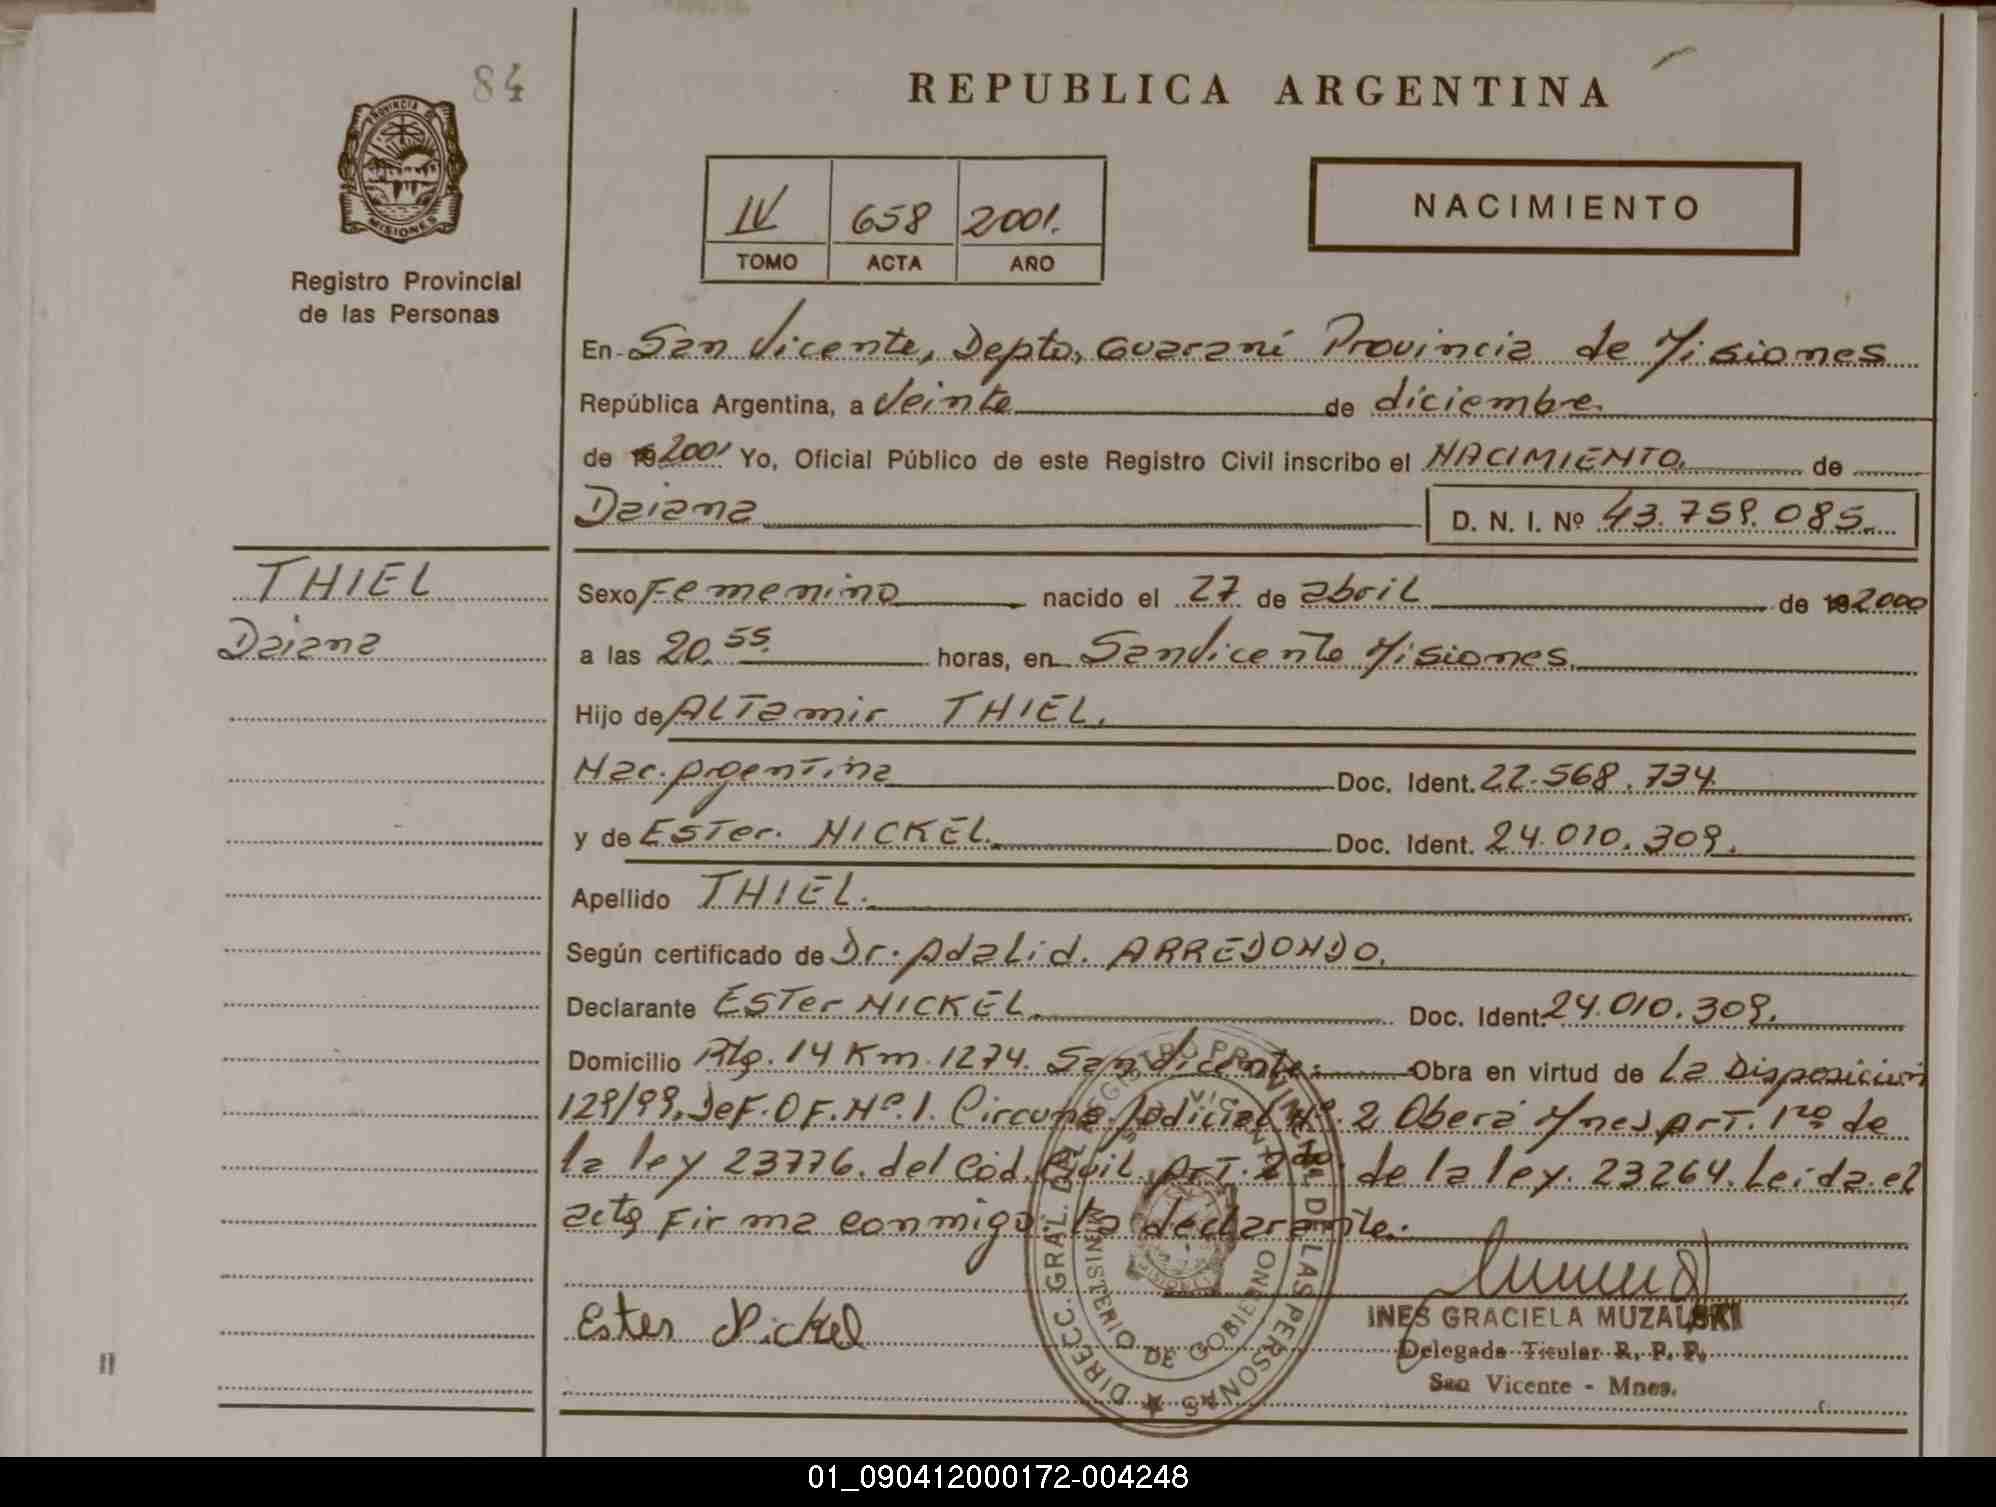 84
REPUBLICA ARGENTINA
PROVINCIA DE
MISIONES
Registro Provincial
de las Personas
IV 658 2001.
TOMO ACTA AÑO
NACIMIENTO
En San Vicente, Depto, Guaraní Provincia de Misiones
República Argentina, a Veinte de diciembre.
de 19 2001 Yo, Oficial Público de este Registro Civil inscribo el NACIMIENTO. de
Daiana D. N. I. Nº 43.759.085.
THIEL
Daiana
Sexo Femenino nacido el 27 de abril de 19 2000
a las 20.55. horas, en San Vicente Misiones.
Hijo de Altamir THIEL.
Nac. Argentina Doc. Ident. 22.568.734
y de Ester. NICKEL. Doc. Ident. 24.010.309.
Apellido THIEL.
Según certificado de Dr. Adalid. ARREDONDO.
Declarante Ester NICKEL. Doc. Ident. 24.010.309.
Domicilio Rta. 14 Km. 1274. San Vicente. Obra en virtud de La Disposición
129/99. Def. Of. Nº. 1. Circuns. Judicial Nº. 2 Oberá Mnes Art. 1ro de
la ley 23776. del Cód. Civil. Art. 2do. de la ley. 23264. Leída el
acta Firma conmigo la declarante.
Ester Nickel
DIRECC. GRAL. DAL REGISTRO PROVINCIAL DE LAS PERSONAS
MINISTERIO DE GOBIERNO
INES GRACIELA MUZALSKI
Delegada Titular R. P. P.
San Vicente - Mnes.
01_090412000172-004248